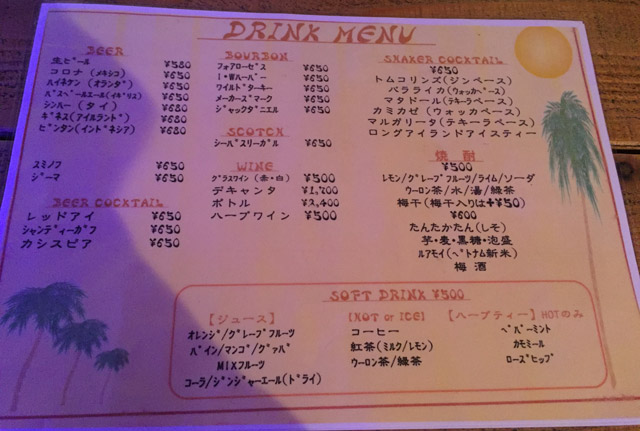 DRINK MENU
BEER
生ビール ¥580
コロナ (メキシコ) ¥650
ハイネケン (オランダ) ¥650
バスペールエール(イギリス) ¥650
シンハー (タイ) ¥680
ギネス(アイルランド) ¥680
ビンタン(インドネシア) ¥680
スミノフ ¥650
ジーマ ¥650
BEER COCKTAIL
レッドアイ ¥650
シャンディーガフ ¥650
カシスビア ¥650
BOURBON
フォアローゼス ¥650
I・Wハーパー ¥650
ワイルドターキー ¥650
メーカーズマーク ¥650
ジャックダニエル ¥650
SCOTCH
シーバスリーガル ¥650
WINE
グラスワイン (赤・白) ¥500
デキャンタ ¥1,700
ボトル ¥2,400
ハーブワイン ¥500
SHAKER COCKTAIL
¥650
トムコリンズ(ジンベース)
バラライカ(ウォッカベース)
マタドール(テキーラベース)
カミカゼ (ウォッカベース)
マルガリータ(テキーラベース)
ロングアイランドアイスティー
焼 酎
¥500
レモン/グレープフルーツ/ライム/ソーダ
ウーロン茶/水/湯/緑茶
梅干(梅干入りは+¥50)
¥600
たんたかたん(しそ)
芋・麦・黒糖・泡盛
ルアモイ(ベトナム新米)
梅 酒
SOFT DRINK ¥500
【ジュース】
オレンジ/グレープフルーツ
パイン/マンゴ/グァバ
MIXフルーツ
コーラ/ジンジャーエール(ドライ)
[HOT or ICE]
コーヒー
紅茶(ミルク/レモン)
ウーロン茶/緑茶
【ハーブティー】HOTのみ
ペパーミント
カモミール
ローズヒップ